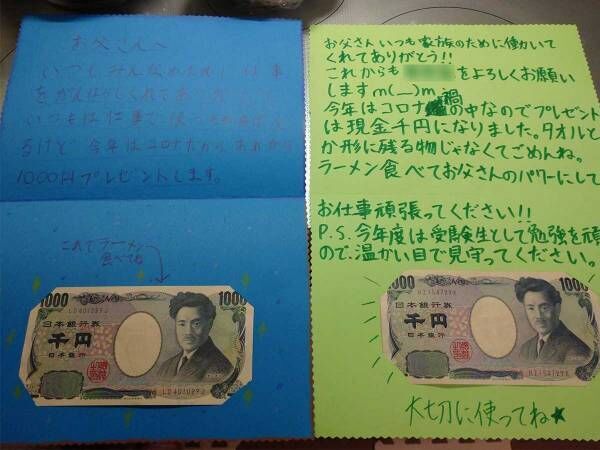 お父さんへ
いつもみんなのために仕事
をがんばってくれてありがとう
いつもは
けど今年はコロナだから
1000円プレゼントします。
これでラーメン
食べてね
1000
日本銀行券
千円
日本銀行
1000
お父さんいつも家族のために働いて
くれてありがとう!!
これからも をよろしくお願い
しますm(__)m
今年はコロナ禍の中なのでプレゼント
は現金千円になりました。タオルと
か形に残る物じゃなくてごめんね。
ラーメン食べてお父さんのパワーにして
お仕事頑張ってください!!
P.S.今年度は受験生として勉強を頑
ので、温かい目で見守ってください。
1000
日本銀行券
千円
日本銀行
1000
大切に使ってね★